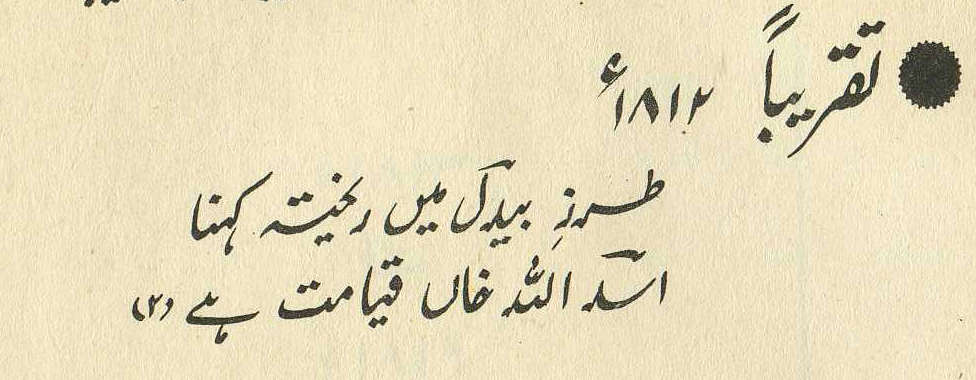 تقریباً ۱۸۱۲ء
طرزِ بیدل میں ریختہ کہنا
اسد اللہ خاں قیامت ہے (۳)